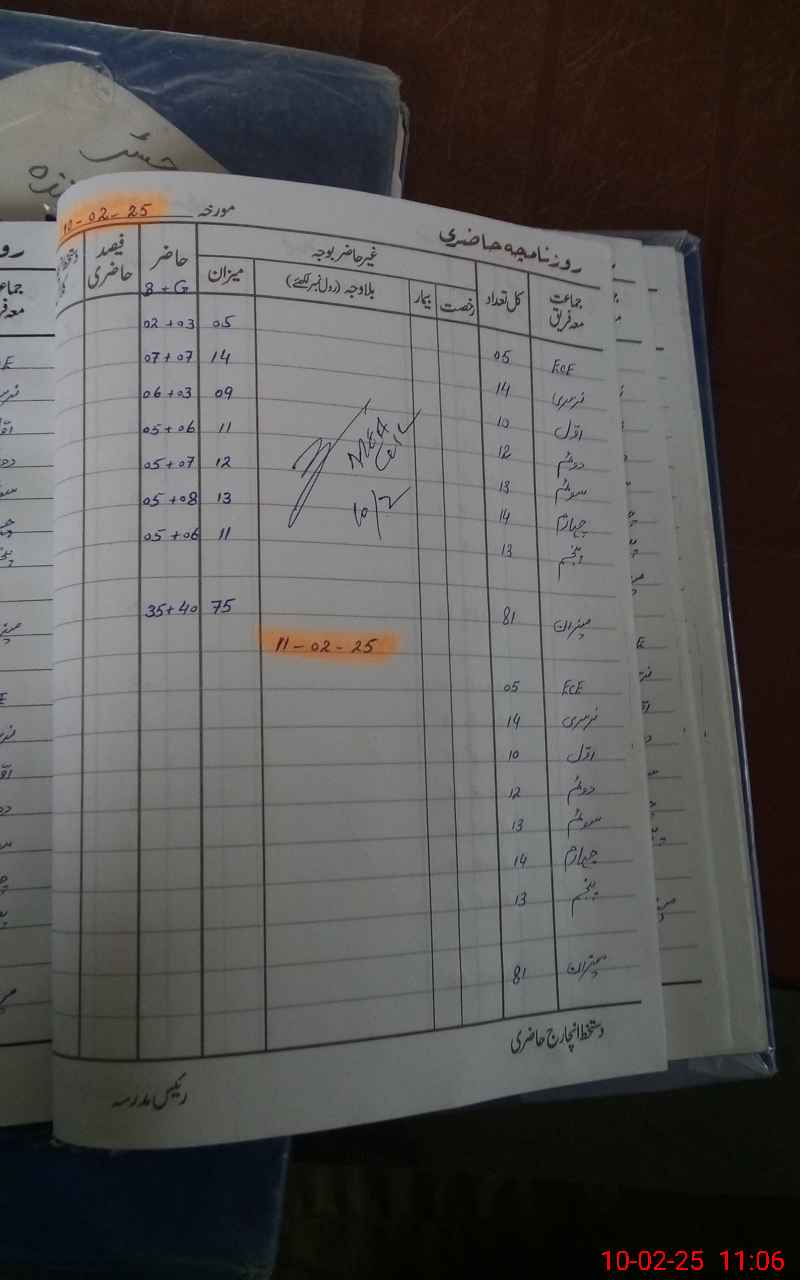 روزنامچہ حاضری مورخہ 10-02-25
جماعت معہ فریق کل تعداد غیر حاضر بوجہ حاضر فیصد حاضری
رخصت بیمار بلاوجہ (رول نمبر لکھئے) میزان B + G
ECE 05 05 02+03
نرسری 14 14 07+07
اوّل 10 09 06+03
دوئم 12 11 05+06
سوئم 13 12 05+07
چہارم 14 13 05+08
پنجم 13 11 05+06
میزان 81 75 35+40
MEA
10/2
11-02-25
ECE 05
نرسری 14
اوّل 10
دوئم 12
سوئم 13
چہارم 14
پنجم 13
میزان 81
دستخط انچارج حاضری
رئیس مدرسہ
10-02-25 11:06